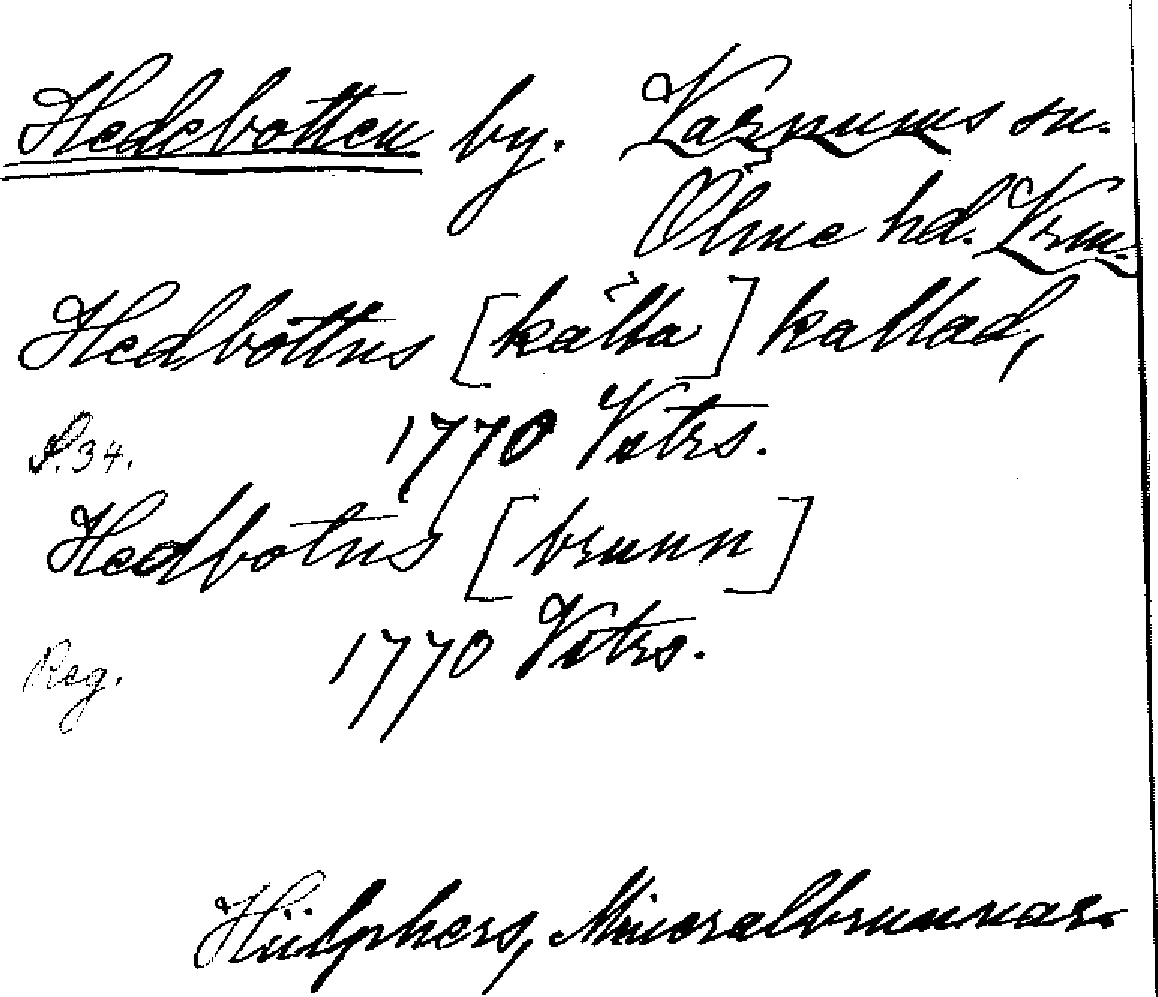 Hedebotten by. Varnums sn.
Ölme hd. Vrm.
Hedbottns [källa] kallad,
S. 34. 1770 Vstrs.
Hedbotns [brunn]
Reg. 1770 Vstrs.
Hülphers, Mineralbrunnar.